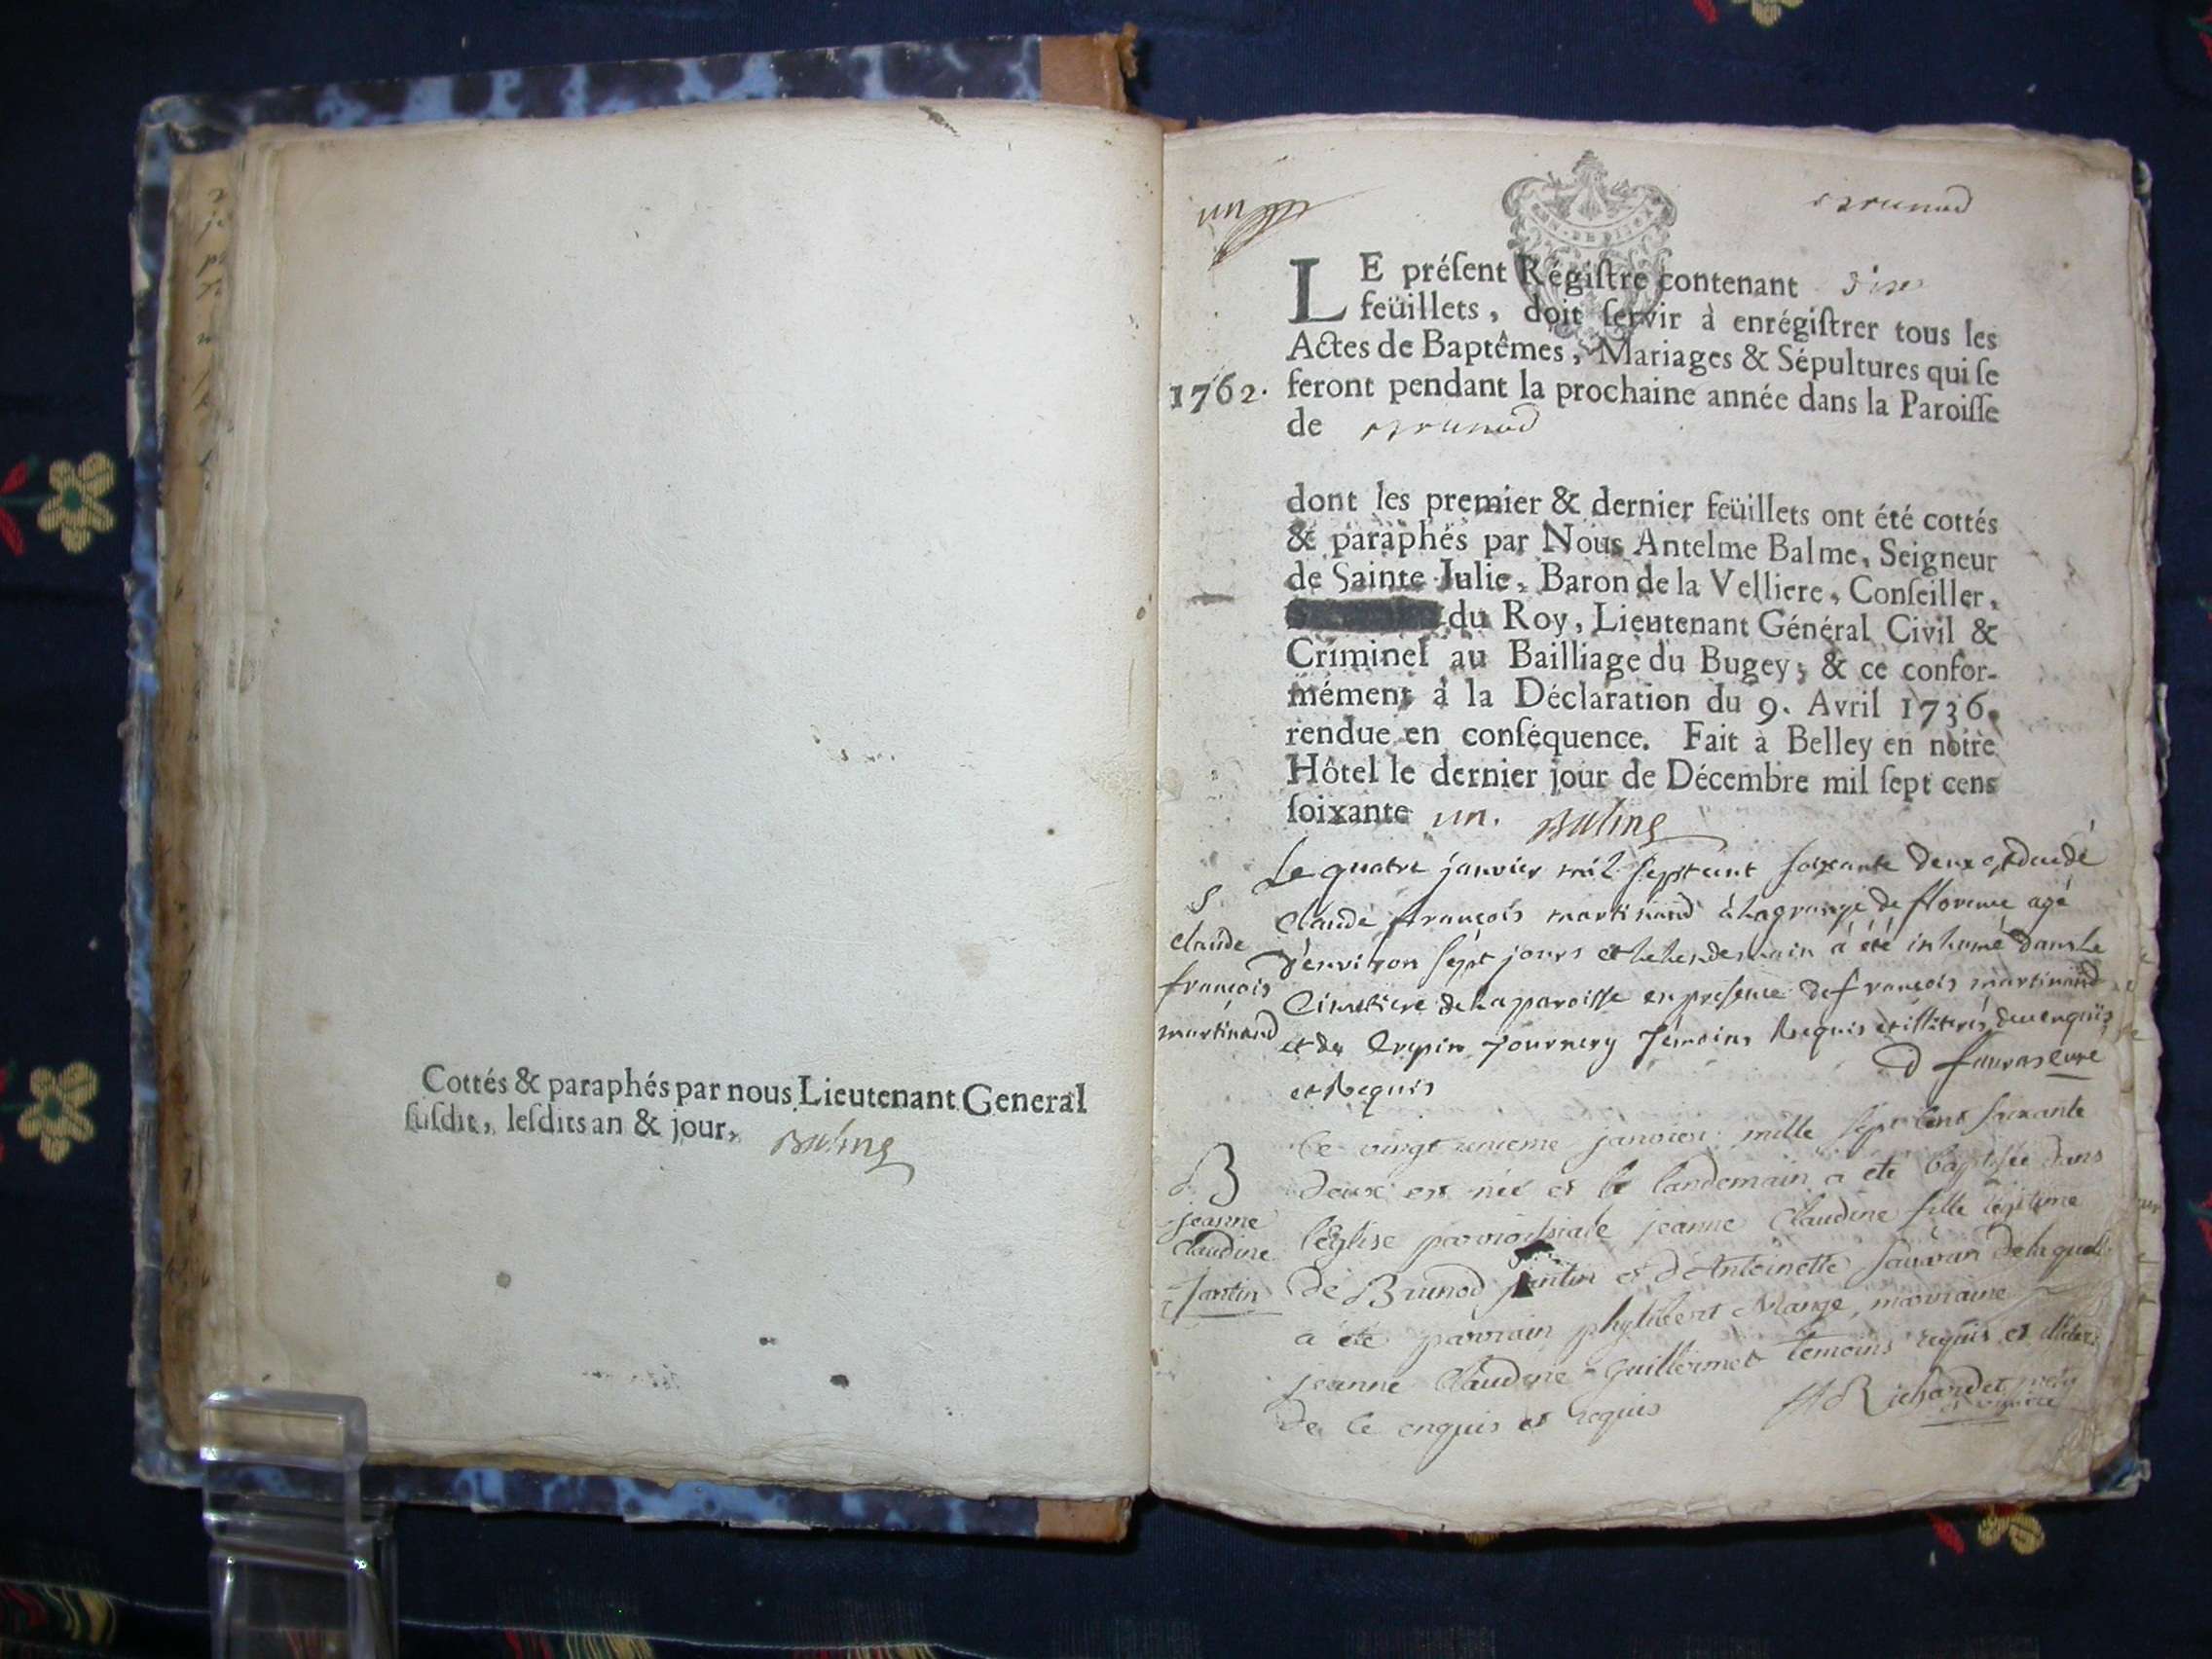 Cottés & paraphés par nous Lieutenant General
ſuſdit, leſdits an & jour.
un
LE préſent Régiſtre contenant dix
feüillets, doit ſervir à enrégiſtrer tous les
Actes de Baptêmes, Mariages & Sépultures qui ſe
1762. feront pendant la prochaine année dans la Paroiſſe
de
dont les premier & dernier feüillets ont été cottés
& paraphés par Nous Antelme Balme, Seigneur
de Sainte Julie, Baron de la Velliere, Conſeiller,
du Roy, Lieutenant Général Civil &
Criminel au Bailliage du Bugey; & ce confor-
mément à la Déclaration du 9. Avril 1736.
rendue en conſéquence. Fait à Belley en notre
Hôtel le dernier jour de Décembre mil ſept cens
ſoixante un. Balme
S
claude
françois
martinand
Le quatre janvier mil sept cent soixante deux est decedé
Claude françois martinand à la grange de florence agé
d'environ sept jours et le lendemain a été inhumé dans le
Cimetiere de la paroisse en presence de françois martinand
et de Crepin temoins requis et illiterés de ce enquis
et Requis
curé
B
jeanne
Claudine
Jantin
Le vingt janvier mille sept cent soixante
deux est née et le landemain a eté baptisée dans
l'Eglise parroissiale jeanne Claudine fille legitime
de Brunod jantin et d'Antoinette de laquelle
a été parrain phylibert Mange, marraine
jeanne Claudine Guillermet temoins requis et
de ce enquis et requis
Richardet